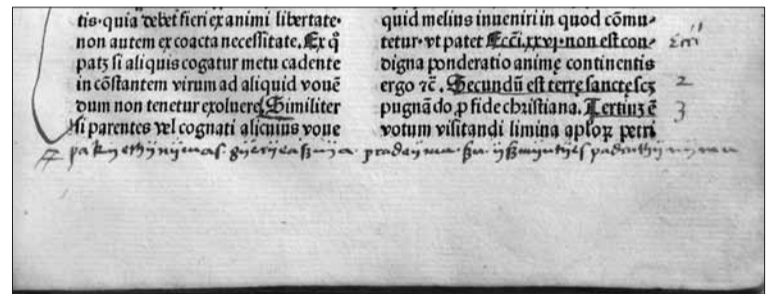 tis·quia debet fieri ex animi libertate·
non autem ex coacta necessitate. Ex qͦ
patꝫ si aliquis cogatur metu cadente
in cōstantem virum ad aliquid vouē
dum non tenetur exoluere. Similiter
si parentes vel cognati alicuius voue
quid melius inueniri in quod cōmu-
tetur·vt patet Ecc̄i.xxvj·non est con-
digna ponderatio animę continentis
ergo ⁊c̄. Secundū est terrę sanctę scꝫ 2
pugnādo.ꝓ fide christiana. Tertiuꝫ ē 3
votum visitandi limina apłoꝝ petri